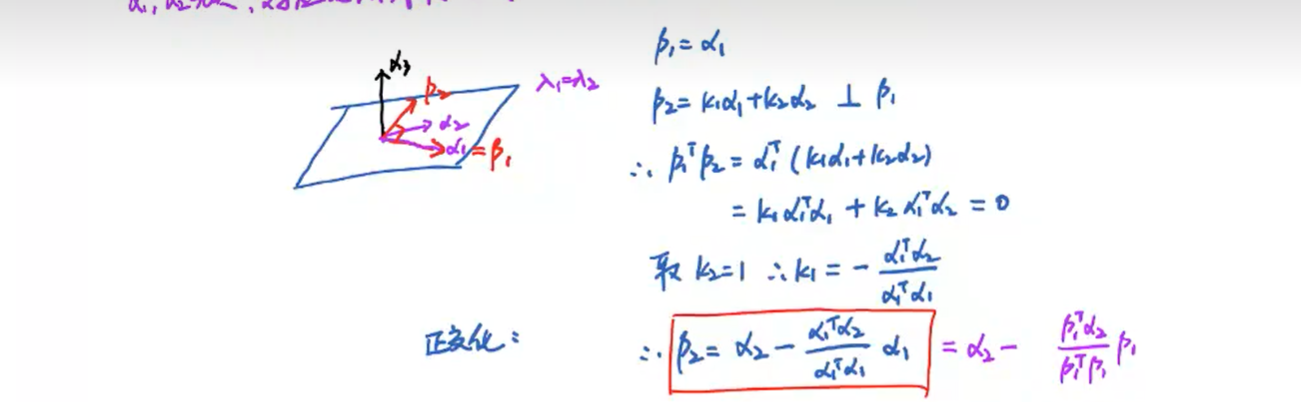 α₁, α₂
α₃
β₂
λ₁=λ₂
α₂
α₁=β₁
β₁=α₁
β₂=k₁α₁+k₂α₂ ⊥ β₁
∴ β₁ᵀβ₂ = α₁ᵀ(k₁α₁+k₂α₂)
= k₁α₁ᵀα₁ + k₂α₁ᵀα₂ = 0
取 k₂=1 ∴ k₁ = - α₁ᵀα₂ / α₁ᵀα₁
正交化:
∴ β₂ = α₂ - α₁ᵀα₂ / α₁ᵀα₁ α₁ = α₂ - β₁ᵀα₂ / β₁ᵀβ₁ β₁